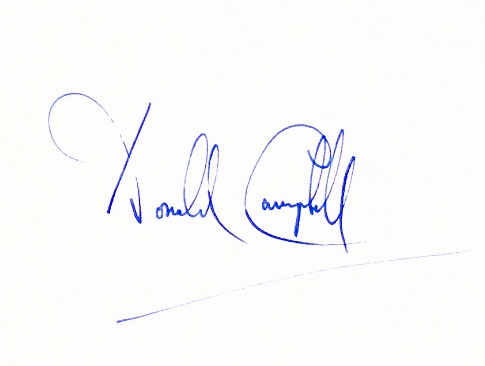 Donald Campbell